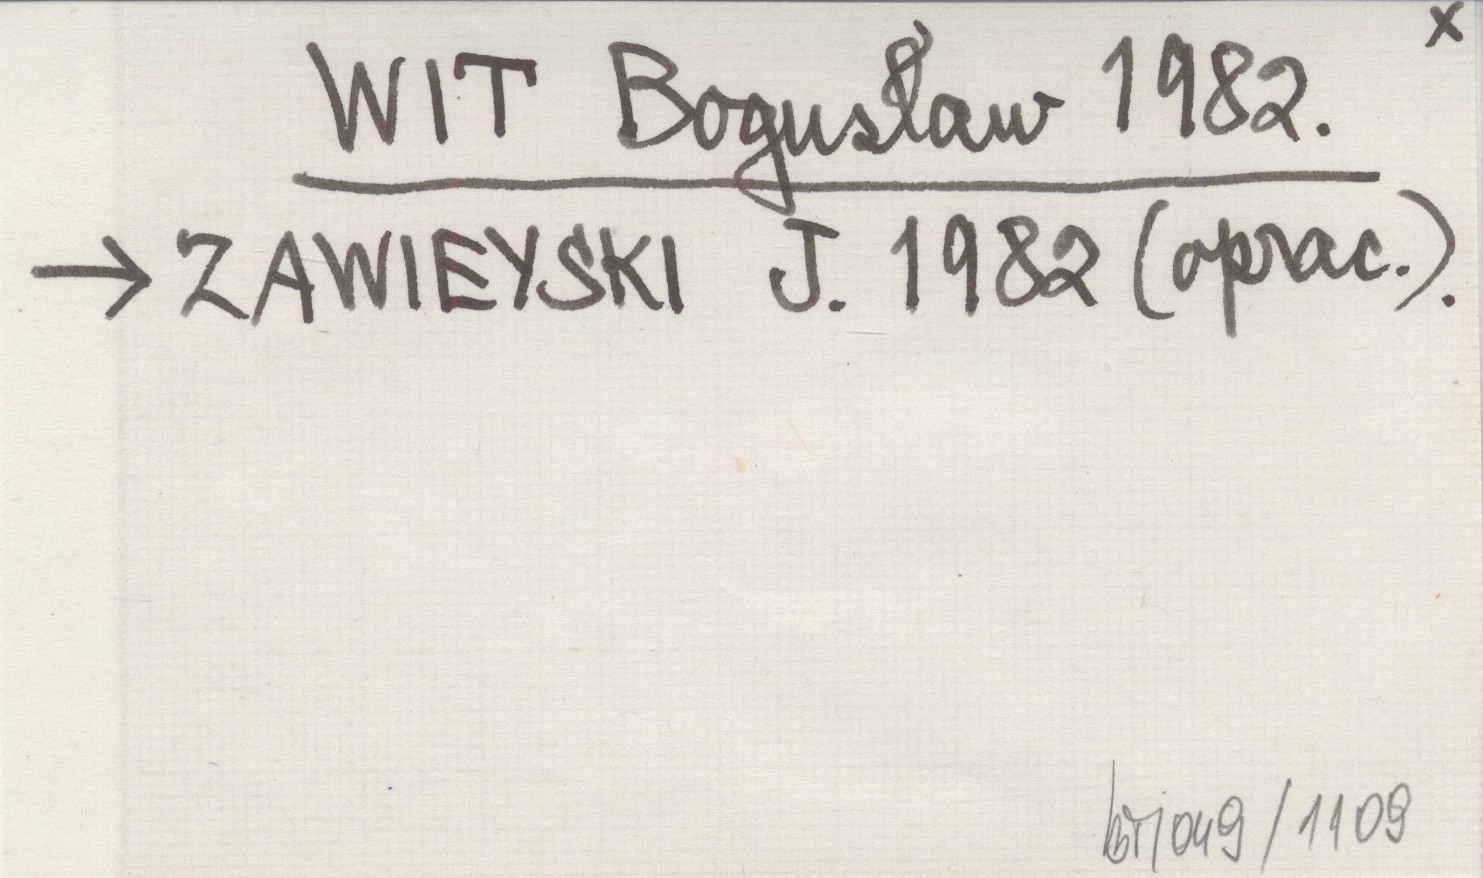 x
WIT Bogusław 1982.
→ ZAWIEYSKI J. 1982 (oprac.).
/1109